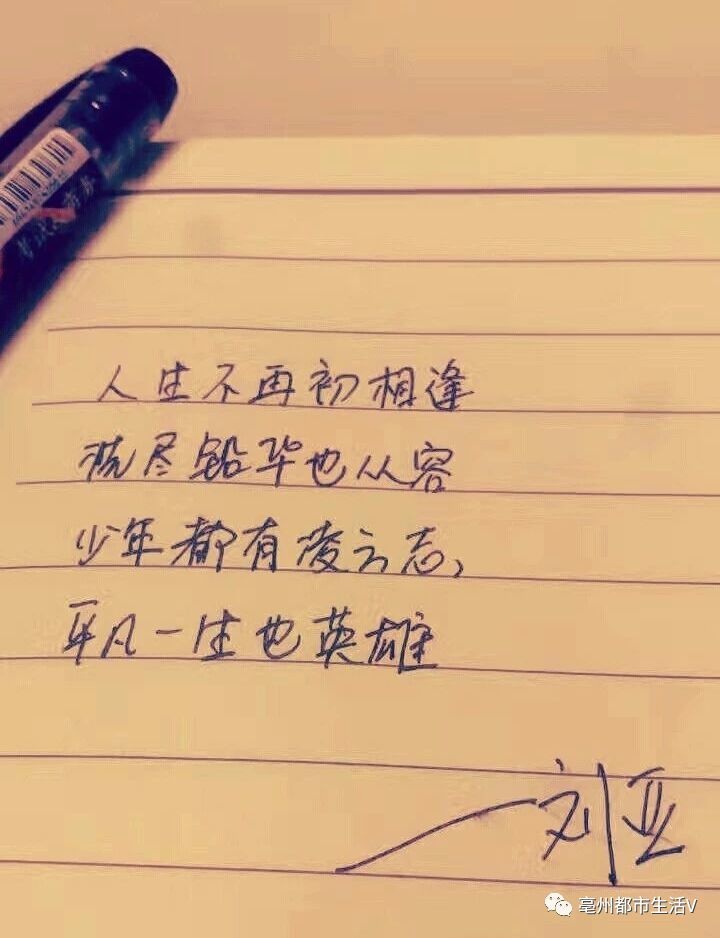 人生不再初相逢
洗尽铅华也从容
少年都有凌云志,
平凡一生也英雄
刘亚
亳州都市生活V